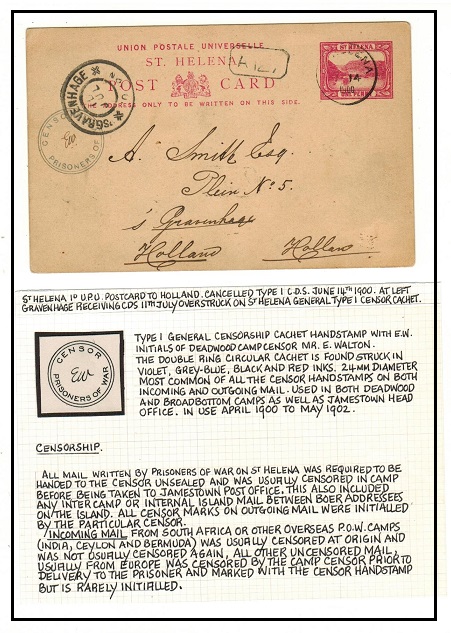 UNION POSTALE UNIVERSELLE
ST. HELENA
POST CARD
THE ADDRESS ONLY TO BE WRITTEN ON THIS SIDE.
ST HELENA
ONE PENNY
14
'SGRAVENHAGE
CENSOR
EW
PRISONERS OF
A. Smith Esq.
Plein No 5.
's Gravenhage
Holland Holland
ST HELENA 1D U.P.U. POSTCARD TO HOLLAND. CANCELLED TYPE I C.D.S. JUNE 14TH 1900. AT LEFT
GRAVENHAGE RECEIVING CDS 11TH JULY OVERSTRUCK ON ST HELENA GENERAL TYPE I CENSOR CACHET.
CENSOR
EW
PRISONERS OF WAR
TYPE I GENERAL CENSORSHIP CACHET HANDSTAMP WITH E.W.
INITIALS OF DEADWOOD CAMP CENSOR MR. E. WALTON.
THE DOUBLE RING CIRCULAR CACHET IS FOUND STRUCK IN
VIOLET, GREY-BLUE, BLACK AND RED INKS. 24MM DIAMETER
MOST COMMON OF ALL THE CENSOR HANDSTAMPS ON BOTH
INCOMING AND OUTGOING MAIL. USED IN BOTH DEADWOOD
AND BROADBOTTOM CAMPS AS WELL AS JAMESTOWN HEAD
OFFICE. IN USE APRIL 1900 TO MAY 1902.
CENSORSHIP.
ALL MAIL WRITTEN BY PRISONERS OF WAR ON ST HELENA WAS REQUIRED TO BE
HANDED TO THE CENSOR UNSEALED AND WAS USUALLY CENSORED IN CAMP
BEFORE BEING TAKEN TO JAMESTOWN POST OFFICE. THIS ALSO INCLUDED
ANY INTER CAMP OR INTERNAL ISLAND MAIL BETWEEN BOER ADDRESSES
ON THE ISLAND. ALL CENSOR MARKS ON OUTGOING MAIL WERE INITIALLED
BY THE PARTICULAR CENSOR.
INCOMING MAIL FROM SOUTH AFRICA OR OTHER OVERSEAS P.O.W. CAMPS
(INDIA, CEYLON AND BERMUDA) WAS USUALLY CENSORED AT ORIGIN AND
WAS NOT USUALLY CENSORED AGAIN, ALL OTHER UNCENSORED MAIL,
USUALLY FROM EUROPE WAS CENSORED BY THE CAMP CENSOR PRIOR TO
DELIVERY TO THE PRISONER AND MARKED WITH THE CENSOR HANDSTAMP
BUT IS RARELY INITIALLED.